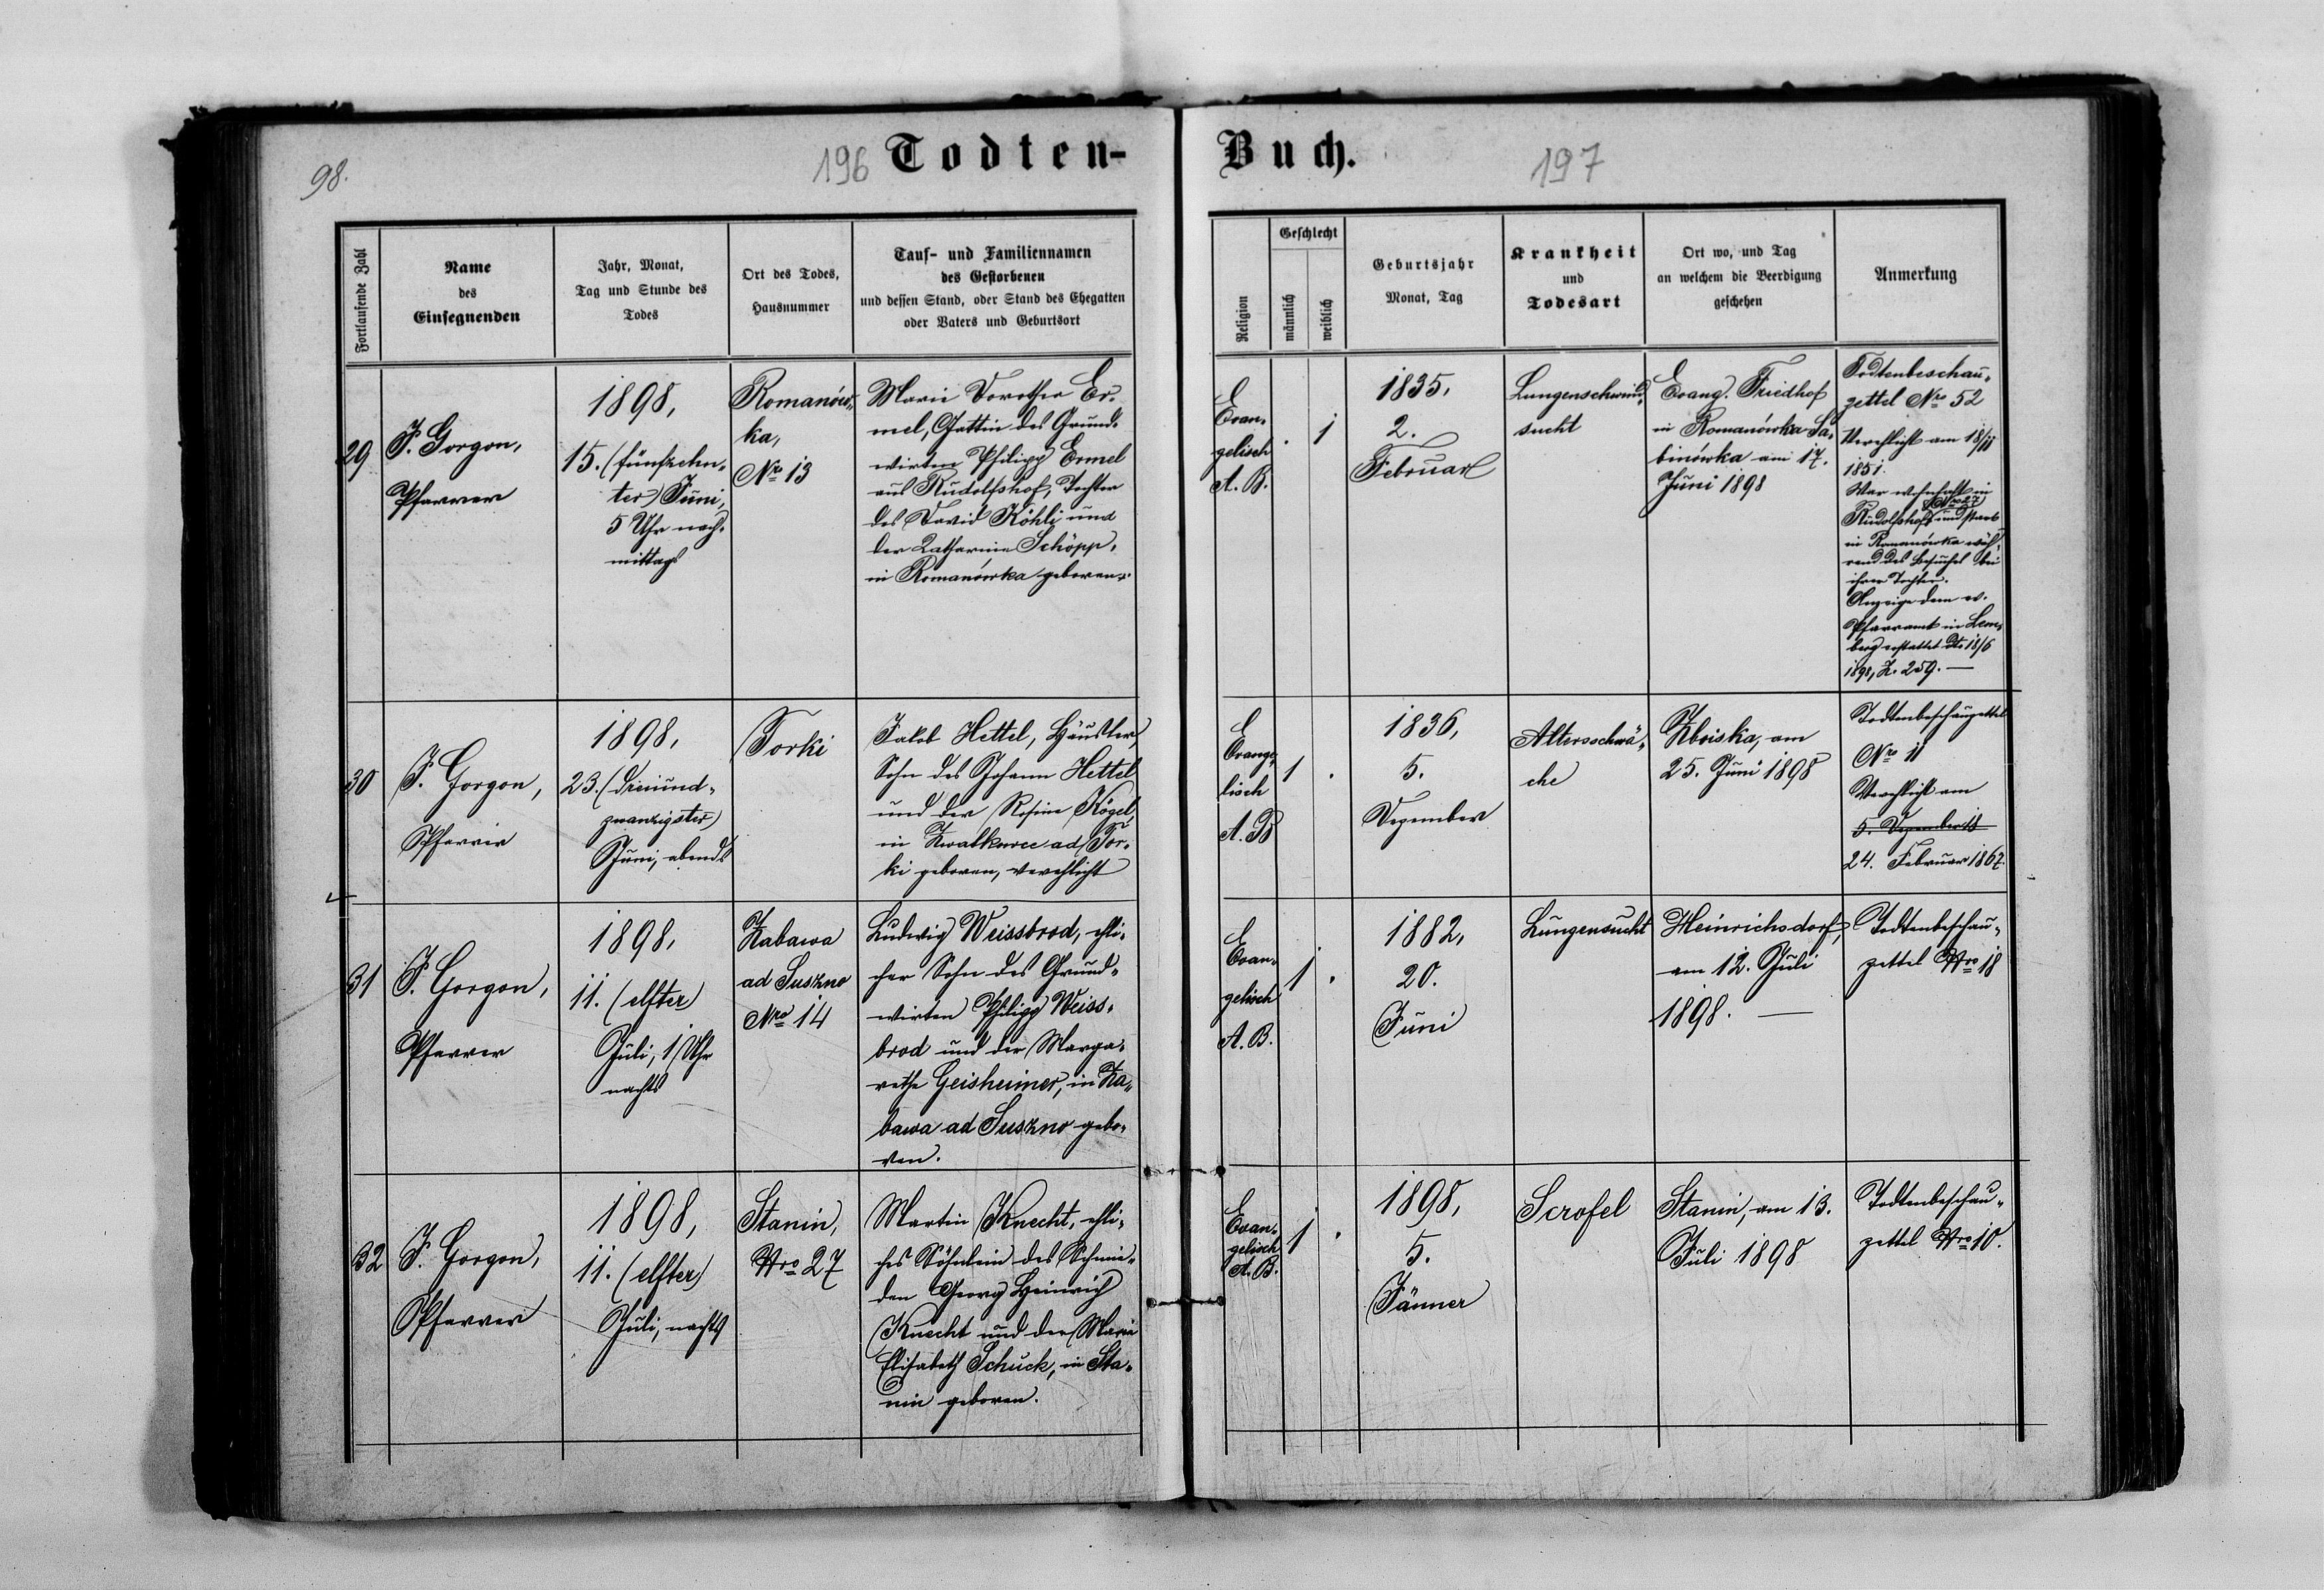 98.
196 Todten-
Buch. 197
Fortlaufende Zahl
Name
des
Einsegnenden
Jahr, Monat,
Tag und Stunde des
Todes
Ort des Todes,
Hausnummer
Tauf- und Familiennamen
des Gestorbenen
und dessen Stand, oder Stand des Ehegatten
oder Vaters und Geburtsort
Religion
Geschlecht
männlich
weiblich
Geburtsjahr
Monat, Tag
Krankheit
und
Todesart
Ort wo, und Tag
an welchem die Beerdigung
geschehen
Anmerkung
29
J. Gorgon,
Pfarrer
1898,
15. (fünfzehn-
ter) Juni,
5 Uhr nach-
mittags
Romanów-
ka,
Nro 13
Marie Dorothea Er-
mel, Gattin des Grund-
wirten Philipp Ermel
aus Rudolfshof, Tochter
des David Köhli und
der Katharine Schöpp,
in Romanówka geboren.
Evan-
gelisch
A. B.
. 1
1835,
2.
Februar
Lungenschwind-
sucht
Evang. Friedhof
in Romanówka-Sa-
binówka am 17.
Juni 1898
Todtenbeschau-
zettel Nro 52
Verehlicht am 18/11
1851.
War wohnhaft in
(Nro 27)
Rudolfshof und starb
in Romanówka wäh-
rend des Besuches bei
ihrer Tochter.
Anzeige dem ev.
Pfarramt in Lem-
berg erstattet dto 18/6
1898, Z. 259. —
30
J. Gorgon,
Pfarrer
1898,
23. (dreiund-
zwanzigster)
Juni, abends
Torki
Jakob Hettel, Häusler,
Sohn des Johann Hettel
und der Rosine Kögel,
in ad Tor-
ki geboren, verehlicht
Evange-
lisch
A. B
1 .
1836,
5.
Dezember
Altersschwä-
che
Zboiska, am
25. Juni 1898
Todtenbeschauzettel
Nro 11
Verehlicht am
5. Dezember 18
24. Februar 1867.
31
J. Gorgon,
Pfarrer
1898,
11. (elfter)
Juli, 1 Uhr
nachts
Zabawa
ad Suszno
Nro 14
Ludwig Weissbrod, ehli-
cher Sohn des Grund-
wirten Philipp Weiss-
brod und der Marga-
rethe Geisheimer, in Za-
bawa ad Suszno gebo-
ren.
Evan-
gelisch
A. B.
1 .
1882,
20.
Juni
Lungensucht
Heinrichsdorf,
am 12. Juli
1898. —
Todtenbeschau-
zettel Nro 18
32
J. Gorgon,
Pfarrer
1898,
11. (elfter)
Juli, nachts
Stanin,
Nro 27
Martin Knecht, ehli-
ches Söhnlein des Schmie-
den Georg Heinrich
Knecht und der Marie
Elisabeth Schuck, in Sta-
nin geboren.
Evan-
gelisch
A. B.
1 .
1898,
5.
Jänner
Scrofel
Stanin, am 13.
Juli 1898
Todtenbeschau-
zettel Nro 10.